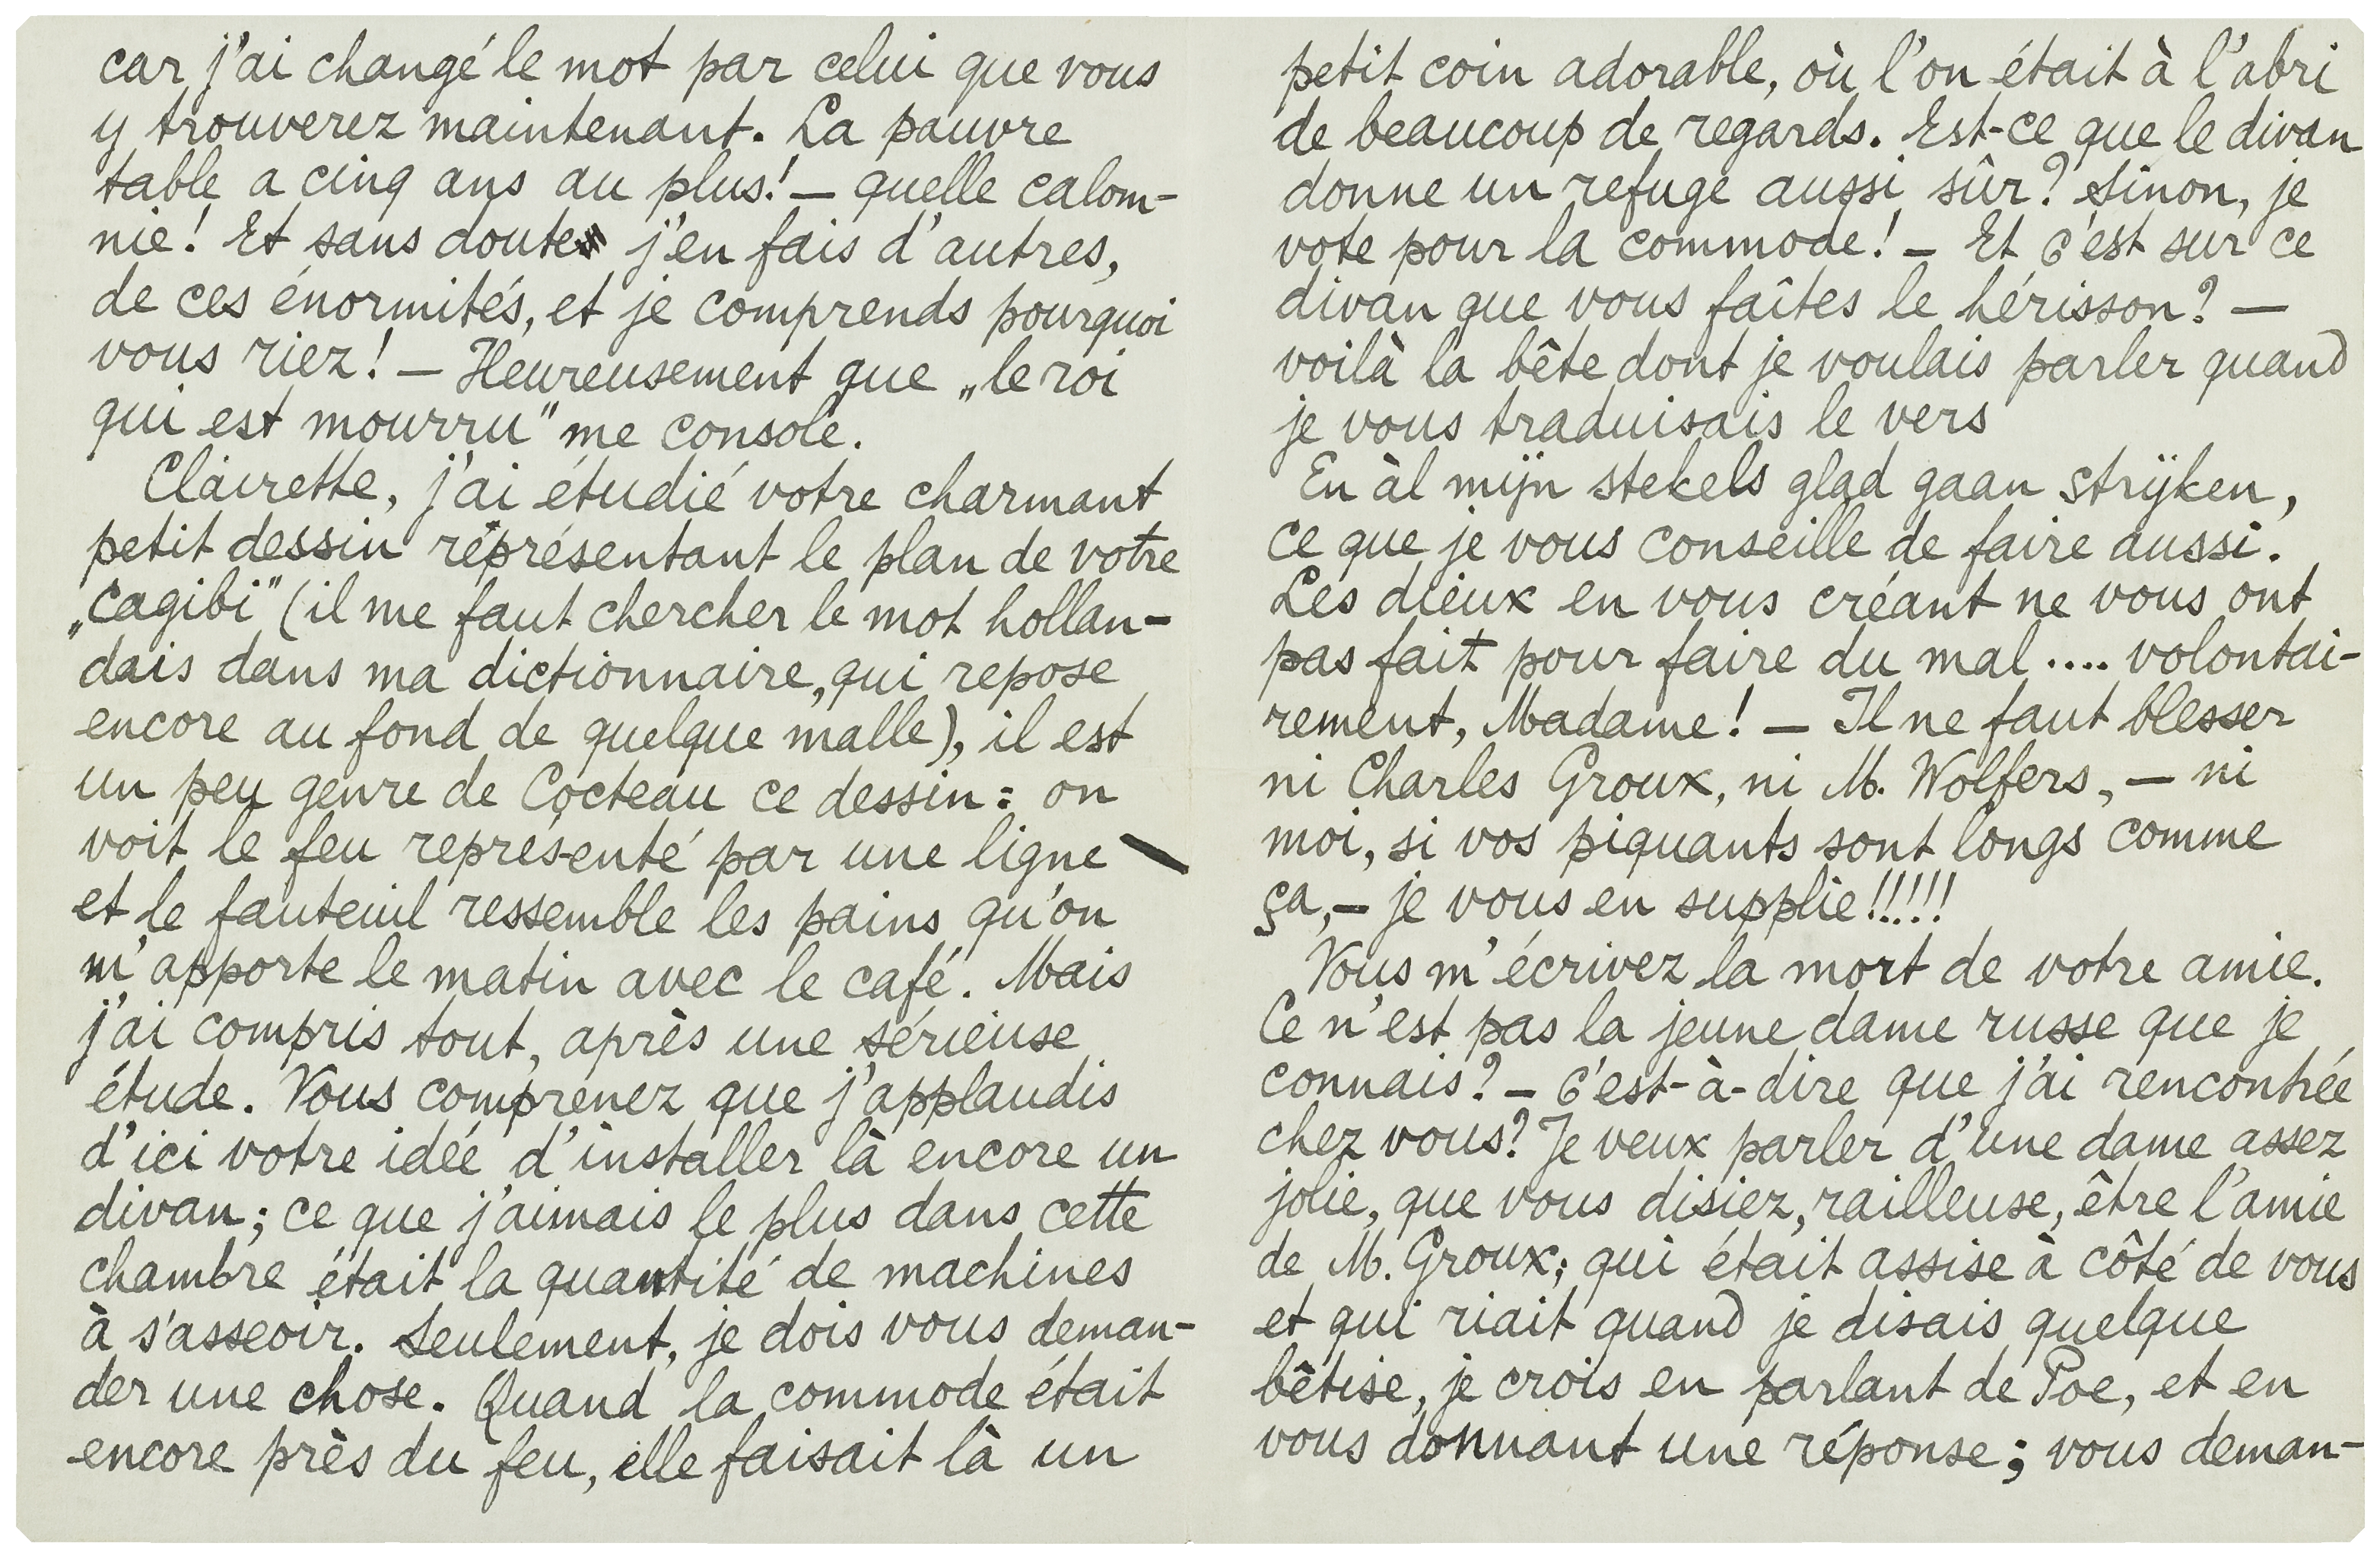 car j'ai changé le mot par celui que vous
y trouverez maintenant. La pauvre
table a cinq ans au plus! — quelle calom-
nie! Et sans doute j'en fais d'autres,
de ces énormités, et je comprends pourquoi
vous riez! — Heureusement que „le roi
qui est mourru" me console.
Clairette, j'ai étudié votre charmant
petit dessin réprésentant le plan de votre
„cagibi" (il me faut chercher le mot hollan-
dais dans ma dictionnaire, qui repose
encore au fond de quelque malle), il est
un peu genre de Cocteau ce dessin: on
voit le feu représenté par une ligne \
et le fauteuil ressemble les pains qu'on
m'apporte le matin avec le café. Mais
j'ai compris tout, après une sérieuse
étude. Vous comprenez que j'applaudis
d'ici votre idée d'installer là encore un
divan; ce que j'aimais le plus dans cette
chambre était la quantité de machines
à s'asseoir. Seulement, je dois vous deman-
der une chose. Quand la commode était
encore près du feu, elle faisait là un
petit coin adorable, où l'on était à l'abri
de beaucoup de regards. Est-ce que le divan
donne un refuge aussi sûr? Sinon, je
vote pour la commode! — Et c'est sur ce
divan que vous faîtes le hérisson? —
voilà la bête dont je voulais parler quand
je vous traduisais le vers
En àl mijn stekels glad gaan strijken,
ce que je vous conseille de faire aussi.
Les dieux en vous créant ne vous ont
pas fait pour faire du mal .... volontai-
rement, Madame! — Il ne faut blesser
ni Charles Groux, ni M. Wolfers, — ni
moi, si vos piquants sont longs comme
ça, — je vous en supplie!!!!!
Vous m'écrivez la mort de votre amie.
Ce n'est pas la jeune dame russe que je
connais? — c'est-à-dire que j'ai rencontrée
chez vous? Je veux parler d'une dame assez
jolie, que vous disiez, railleuse, être l'amie
de M. Groux; qui était assise à côté de vous
et qui riait quand je disais quelque
bêtise, je crois en parlant de Poe, et en
vous donnant une réponse; vous deman-